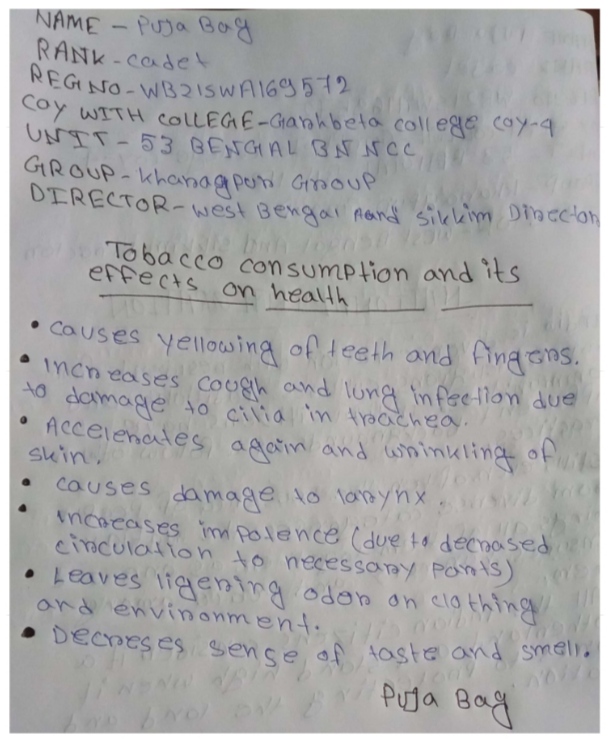 NAME - Puja Bag
RANK - cadet
REGNO - WB21SWA169572
COY WITH COLLEGE - Garhbeta college coy-9
UNIT - 53 BENGAL BN NCC
GROUP - kharagpur Group
DIRECTOR - west Bengal Aand sikkim Director
Tobacco consumption and its
effects on health
• causes yellowing of teeth and fingers.
• Increases cough and lung infection due
to damage to cilia in trachea.
• Accelerates again and wrinkling of
skin.
• causes damage to larynx.
• increases impotence (due to decreased
circulation to necessary parts)
• Leaves ligering odor on clothing
and environment.
• Decreses sense of taste and smell.
Puja Bag